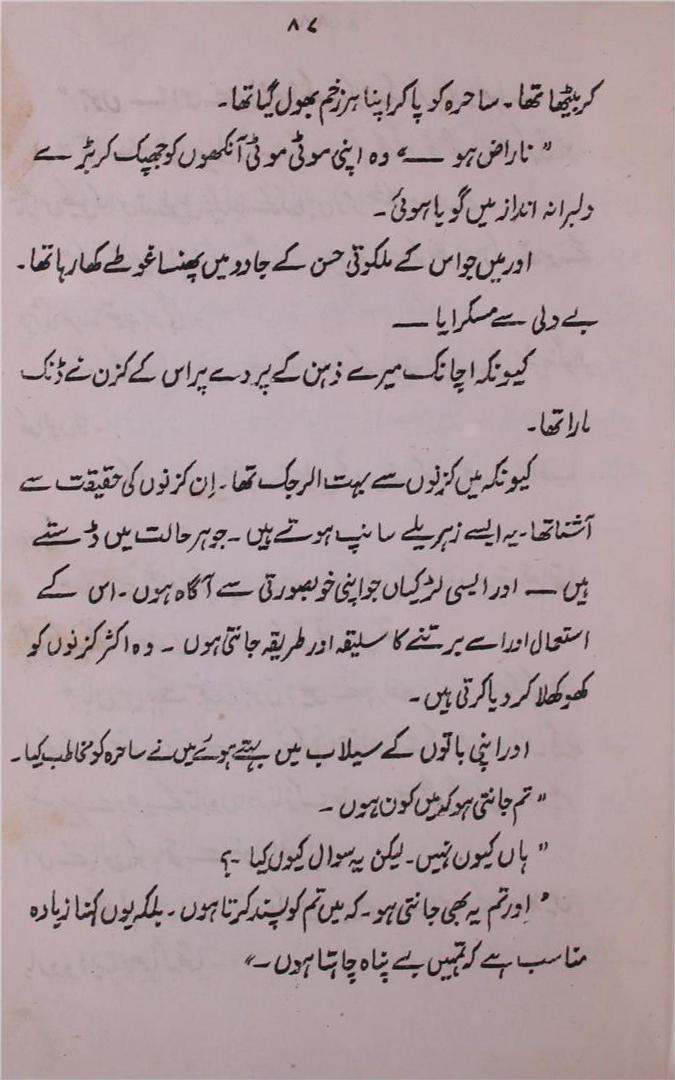 ۸۷
کر بیٹھا تھا۔ ساحرہ کو پا کر اپنا ہر زخم بھول گیا تھا۔
" ناراض ہو —" وہ اپنی موٹی موٹی آنکھوں کو جھپک کر بڑے
دلبرانہ انداز میں گویا ہوئی۔
اور میں جو اس کے ملکوتی حسن کے جادو میں پھنسا غوطے کھا رہا تھا۔
بے دلی سے مسکرایا —
کیونکہ اچانک میرے ذہن کے پردے پر اس کے کزن نے ڈنک
مارا تھا۔
کیونکہ میں کزنوں سے بہت الرجک تھا۔ اِن کزنوں کی حقیقت سے
آشنا تھا۔ یہ ایسے زہریلے سانپ ہوتے ہیں۔ جو ہر حالت میں ڈستے
ہیں — اور ایسی لڑکیاں جو اپنی خوبصورتی سے آگاہ ہوں۔ اس کے
استعمال اور اسے برتنے کا سلیقہ اور طریقہ جانتی ہوں ۔ وہ اکثر کزنوں کو
کھوکھلا کر دیا کرتی ہیں۔
اور اپنی باتوں کے سیلاب میں بہتے ہوئے میں نے ساحرہ کو مخاطب کیا۔
" تم جانتی ہو کہ میں کون ہوں ۔
" ہاں کیوں نہیں۔ لیکن یہ سوال کیوں کیا ۔؟
" اور تم یہ بھی جانتی ہو۔ کہ میں تم کو پسند کرتا ہوں۔ بلکہ یوں کہنا زیادہ
مناسب ہے کہ تمہیں بے پناہ چاہتا ہوں۔"